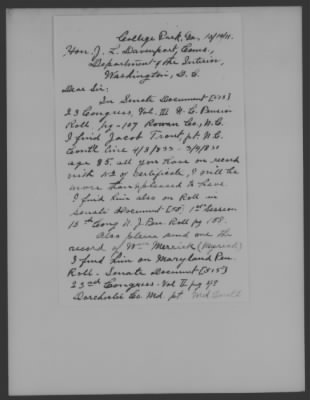 College Park, Ga, 10/19/11.
Hon. J. L. Davenport, Coms.,
Department of the Interior,
Washington, D. C.
Dear Sir:
In Senate Document [515]
23 Congress, Vol. III N. C. Pension
Roll pg - 107 Rowan Co, N.C.
I find Jacob Trout pt. N.C.
Contl line
age 85. all you have on record
with no of Certificate, I will be
more than pleased to have.
I find him also on Roll in
Senate Document 1st Session
15th Cong Pen. Roll pg 188.
Also please send me the
record of Wm Merrick (Myrick)
I find him on Maryland Pen.
Roll - Senate Document [515]
23rd Congress - Vol II pg 48
Dorchester Co. Md. pt Md Contl